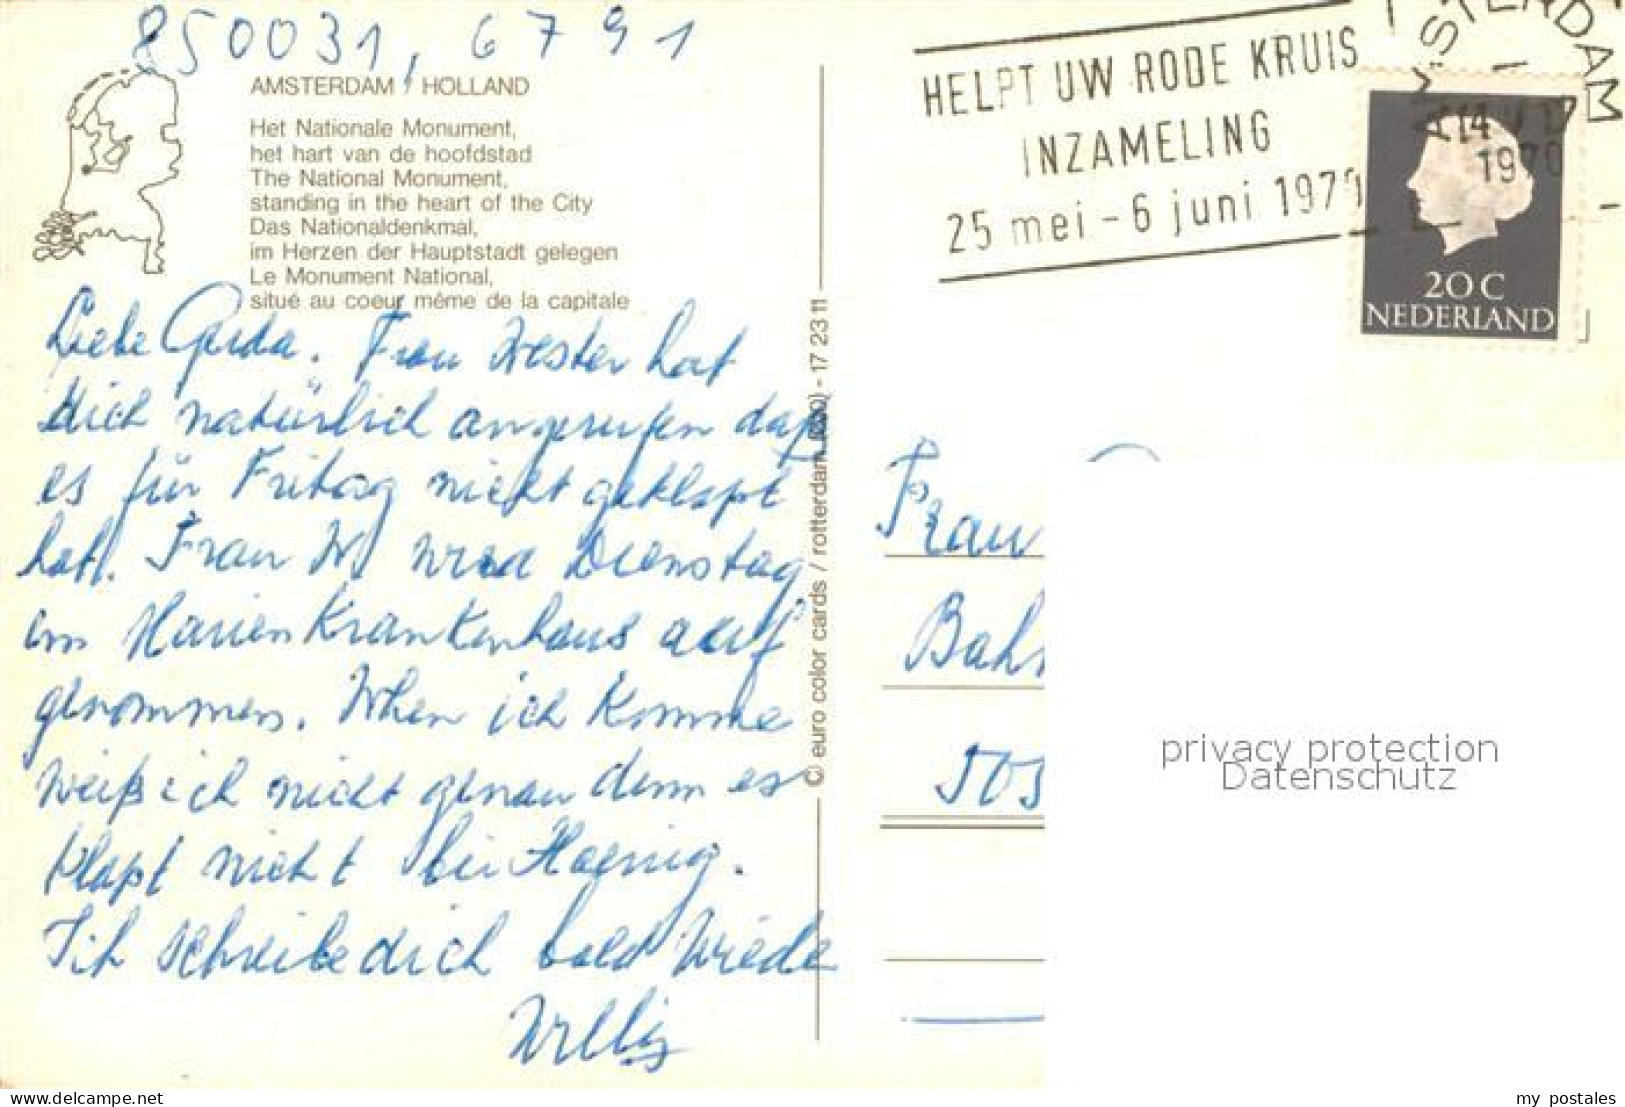 850031, 6791
AMSTERDAM / HOLLAND
Het Nationale Monument,
het hart van de hoofdstad
The National Monument,
standing in the heart of the City
Das Nationaldenkmal,
im Herzen der Hauptstadt gelegen
Le Monument National,
situé au coeur même de la capitale
Liebe Guda. Frau Wester hat
dich natürlich angerufen daß
es für Fritag nicht geklapt
hat. Frau W wird Dienstag
im Marienkrankenhaus auf
genommen. When ich komme
weiß ich nicht genau denn es
klapt nicht bei Hoenig.
Ich schreibe dich bald wiede
Willy
© euro color cards / rotterdam - 17 23 11
HELPT UW RODE KRUIS
INZAMELING
25 mei - 6 juni 1970
AMSTERDAM
1970
20 C
NEDERLAND
Frau
Bah
505
privacy protection
Datenschutz
delcampe.net
my_postales